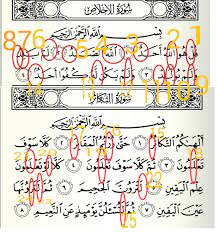 سُورَةُ الإِخْلَاصِ
بِسْمِ اللَّهِ الرَّحْمَٰنِ الرَّحِيمِ
8 7 6 5 4 3 2 1
قُلْ هُوَ اللَّهُ أَحَدٌ ١ اللَّهُ الصَّمَدُ ٢ لَمْ يَلِدْ
وَلَمْ يُولَدْ ٣ وَلَمْ يَكُن لَّهُ كُفُوًا أَحَدٌ ٤
سُورَةُ التَّكَاثُرِ
بِسْمِ اللَّهِ الرَّحْمَٰنِ الرَّحِيمِ
أَلْهَىٰكُمُ التَّكَاثُرُ ١ حَتَّىٰ زُرْتُمُ الْمَقَابِرَ ٢ كَلَّا سَوْفَ
تَعْلَمُونَ ٣ ثُمَّ كَلَّا سَوْفَ تَعْلَمُونَ ٤ كَلَّا لَوْ تَعْلَمُونَ
عِلْمَ الْيَقِينِ ٥ لَتَرَوُنَّ الْجَحِيمَ ٦ ثُمَّ لَتَرَوُنَّهَا
عَيْنَ الْيَقِينِ ٧ ثُمَّ لَتُسْـَٔلُنَّ يَوْمَئِذٍ عَنِ النَّعِيمِ ٨